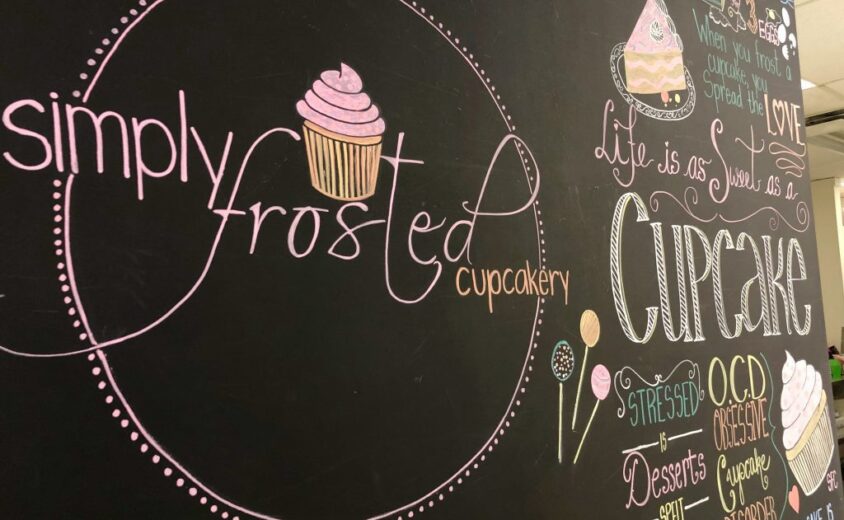 simply
frosted
cupcakery
3
EGGS
When you frost a
cupcake, you
Spread the
LOVE
Life is as Sweet as a
Cupcake
STRESSED
is
Desserts
SPELT
O.C.D
OBSESSIVE
Cupcake
DISORDER
SFC